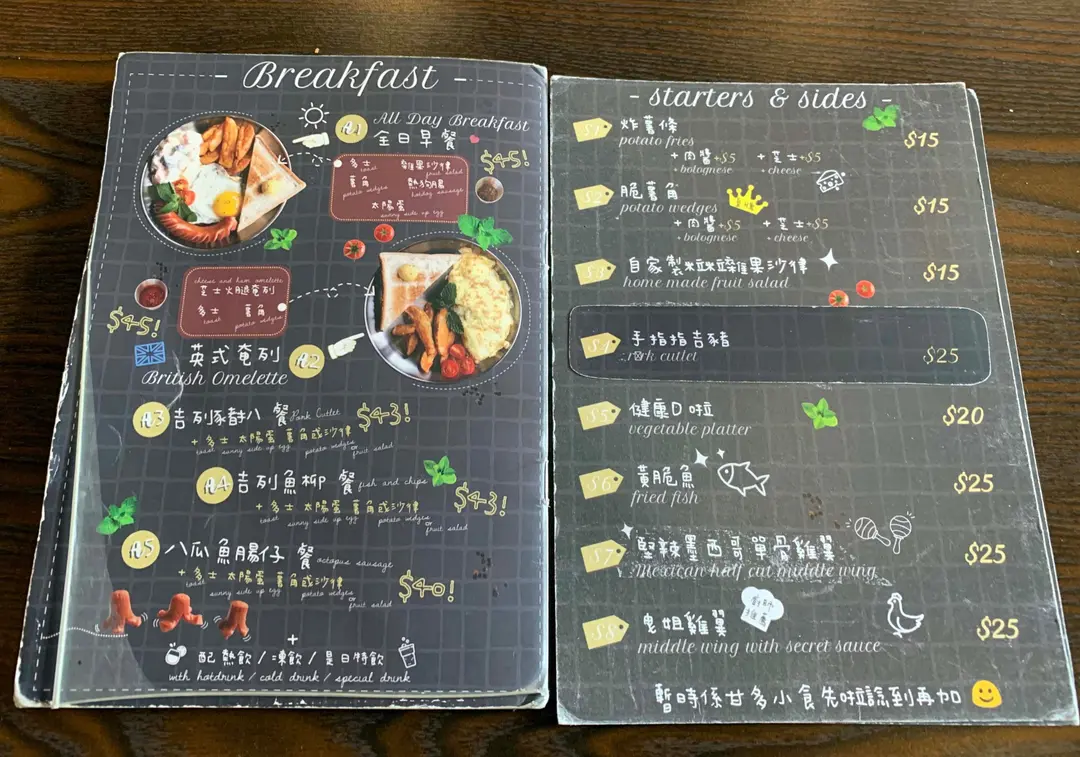 - Breakfast -
A1
All Day Breakfast
全日早餐
$45!
多士 雞果沙律
toast fruit salad
薯角 熱狗腸
potato wedges hotdog sausage
太陽蛋
sunny side up egg
cheese and ham omelette
芝士火腿奄列
多士 薯角
toast potato wedges
$45!
英式奄列 A2
British Omelette
A3 吉列豬扒 餐 Pork Cutlet $43!
+ 多士 太陽蛋 薯角或沙律
toast sunny side up egg potato wedges or fruit salad
A4 吉列魚柳 餐 fish and chips $43!
+ 多士 太陽蛋 薯角或沙律
toast sunny side up egg potato wedges or fruit salad
A5 八爪魚腸仔 餐 octopus sausage $40!
+ 多士 太陽蛋 薯角或沙律
toast sunny side up egg potato wedges or fruit salad
+
配 熱飲 / 凍飲 / 是日特飲
with hotdrink / cold drink / special drink
- starters & sides -
S1 炸薯條 $15
potato fries
+ 肉醬 +$5 + 芝士 +$5
+ bolognese + cheese
S2 脆薯角 $15
potato wedges
+ 肉醬 +$5 + 芝士 +$5
+ bolognese + cheese
S3 自家製粒粒雜果沙律 $15
home made fruit salad
S4 手指指吉豬 $25
cutlet
S5 健康D啦 $20
vegetable platter
S6 黃脆魚 $25
fried fish
S7 堅辣墨西哥單骨雞翼 $25
Mexican half cut middle wing
S8 鬼姐雞翼 $25
middle wing with secret sauce
暫時係甘多小食先啦諗到再加